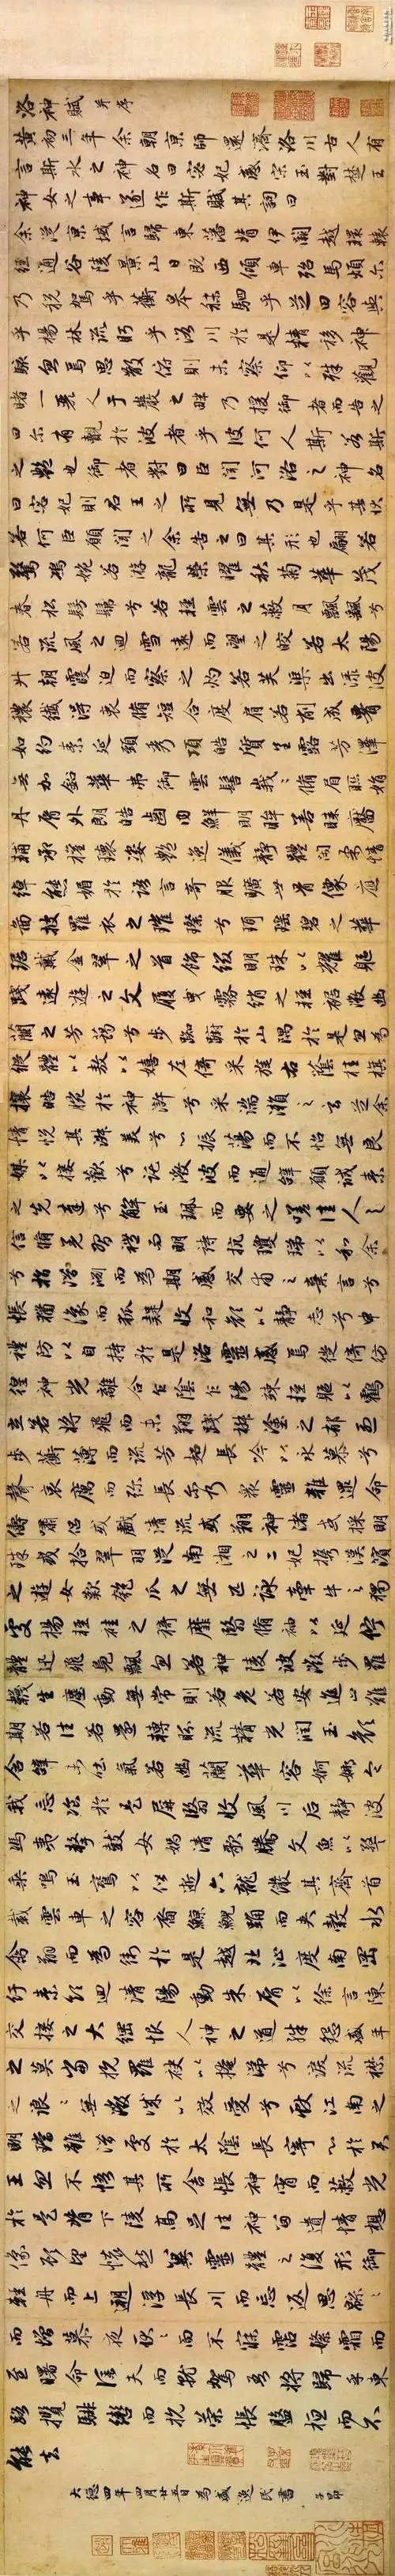 洛神賦 并序
黃初三年余朝京師還濟洛川古人有
言斯水之神名曰宓妃感宋玉對楚王
神女之事遂作斯賦其詞曰
余從京域言歸東藩背伊闕越轘轅
經通谷陵景山日既西傾車殆馬煩尔
乃稅駕乎蘅皋秣駟乎芝田容與
乎楊林流眄乎洛川於是精移神
駭忽焉思散俯則未察仰以殊觀
睹一麗人于巖之畔乃援御者而告之
曰尔有覿於彼者乎彼何人斯若斯
之艷也御者對曰臣聞河洛之神名
曰宓妃則君王之所見無乃是乎其狀
若何臣願聞之余告之曰其形也翩若
驚鴻婉若游龍榮曜秋菊華茂
春松髣髴兮若輕雲之蔽月飄飄兮
若流風之迴雪遠而望之皎若太陽
升朝霞迫而察之灼若芙渠出渌波
穠纖得衷脩短合度肩若削成腰
如約素延頸秀項皓質呈露芳澤
無加鉛華弗御雲髻峩峩脩眉聯娟
丹脣外朗皓齒內鮮明眸善睞靨
輔承權瓌姿艷逸儀靜體閑柔情
綽態媚於語言奇服曠世骨像應
圖披羅衣之璀璨兮珥瑤碧之華
琚戴金翠之首飾綴明珠以耀軀
踐遠遊之文履曳霧綃之輕裾微幽
蘭之芳藹兮步踟躕於山隅於是忽焉
縱體以敖以嬉左倚采旄右蔭桂旗
攘皓腕於神滸兮采湍瀨之玄芝余
情悅其淑美兮心振蕩而不怡無良
媒以接歡兮託微波而通辭願誠素
之先達兮解玉珮而要之嗟佳人之
信脩羌習禮而明詩抗瓊珶以和余
兮指潛淵而為期感交甫之棄言兮
悵猶豫而狐疑收和顏以靜志兮申
禮防以自持於是洛靈感焉徙倚彷
徨神光離合乍陰乍陽竦輕軀以鶴
立若將飛而未翔踐椒塗之郁烈
步蘅薄而流芳超長吟以永慕兮
聲哀厲而弥長尔乃衆靈雜遝命
儔嘯侶或戲清流或翔神渚或採明
珠或拾翠羽從南湘之二妃攜漢濱
之遊女歎匏瓜之無匹詠牽牛之獨
處揚輕袿之猗靡翳脩袖以延佇
體迅飛鳧飄忽若神陵波微步羅
韈生塵動無常則若危若安進止難
期若往若還轉眄流精光潤玉顏
含辭未吐氣若幽蘭華容婀娜令
我忘飡於是屏翳收風川后靜波
馮夷擊鼓女媧清歌騰文魚以警
乘鳴玉鸞以偕逝六龍儼其齊首
載雲車之容裔鯨鯢踊而夾轂水
禽翔而為衛於是越北沚度南岡
紆素領迴清陽動朱脣以徐言陳
交接之大綱恨人神之道殊怨盛年
之莫當抗羅袂以掩涕兮淚流襟
之浪浪無微情以效愛兮獻江南之
明璫雖潛處於太陰長寄心於君
王忽不悟其所舍悵神宵而蔽光
於是背下陵高足往神留遺情想
像顧望懷愁冀靈體之復形御
輕舟而上遡浮長川而忘返思緜緜
而增慕夜耿耿而不寐霑繁霜而
至曙命僕夫而就駕吾將歸乎東
路攬騑轡而抗策悵盤桓而不
能去
大德四年四月廿五日為盛逸民書 子昂